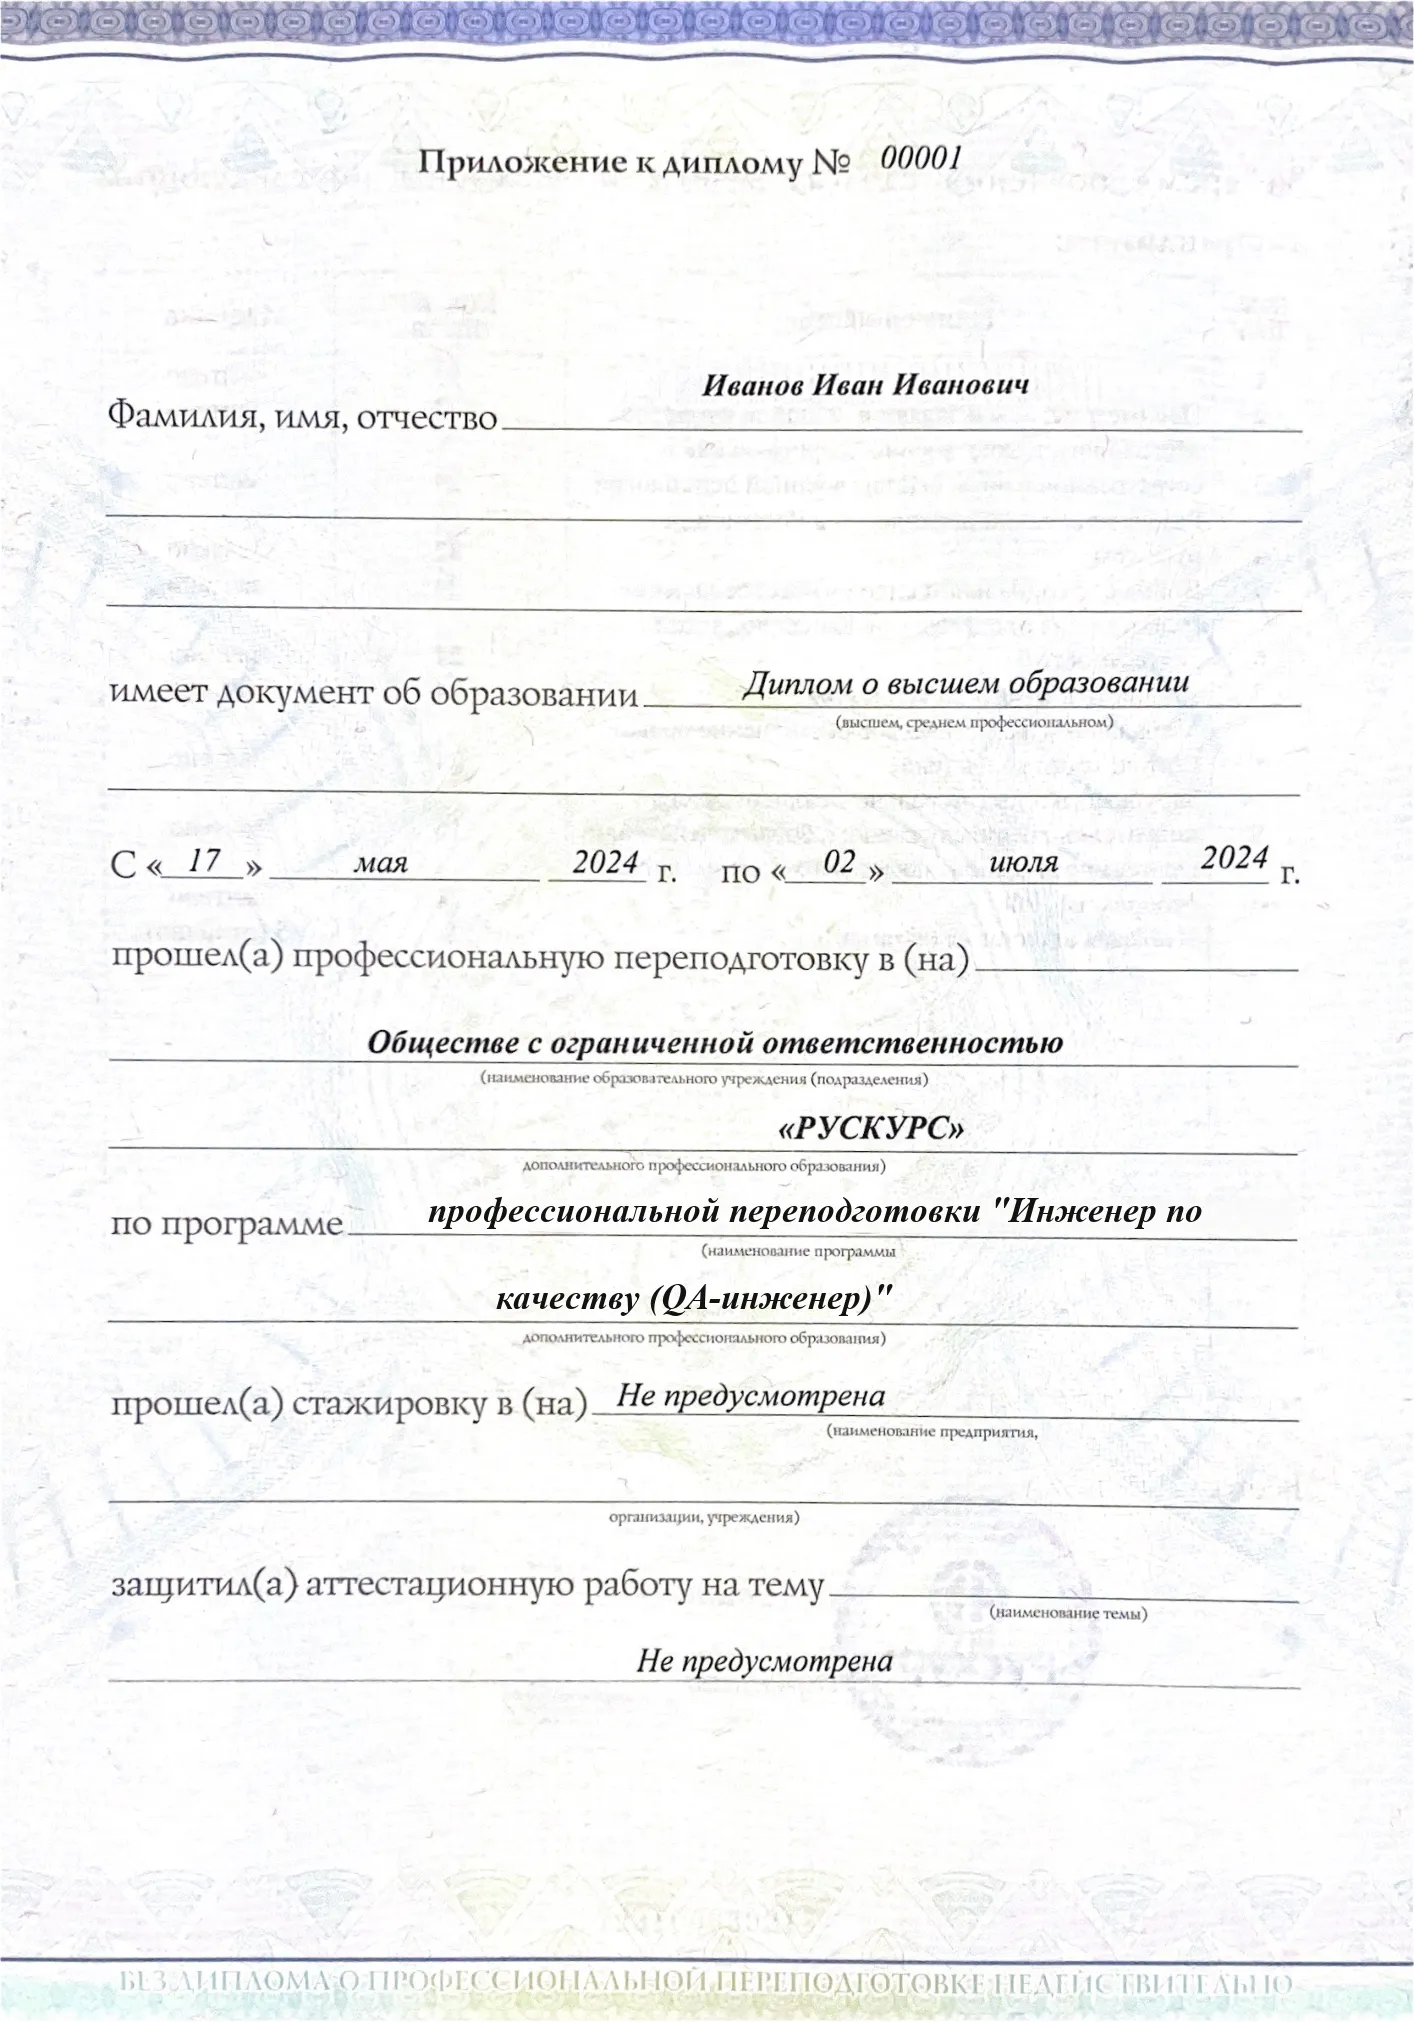 Приложение к диплому № 00001
Иванов Иван Иванович
Фамилия, имя, отчество
имеет документ об образовании Диплом о высшем образовании
(высшем, среднем профессиональном)
С «17» мая 2024 г. по «02» июля 2024 г.
прошел(а) профессиональную переподготовку в (на)
Обществе с ограниченной ответственностью
(наименование образовательного учреждения (подразделения)
«РУСКУРС»
дополнительного профессионального образования)
по программе профессиональной переподготовки "Инженер по
(наименование программы
качеству (QA-инженер)"
дополнительного профессионального образования)
прошел(а) стажировку в (на) Не предусмотрена
(наименование предприятия,
организации, учреждения)
защитил(а) аттестационную работу на тему
(наименование темы)
Не предусмотрена
БЕЗ ДИПЛОМА О ПРОФЕССИОНАЛЬНОЙ ПЕРЕПОДГОТОВКЕ НЕДЕЙСТВИТЕЛЬНО